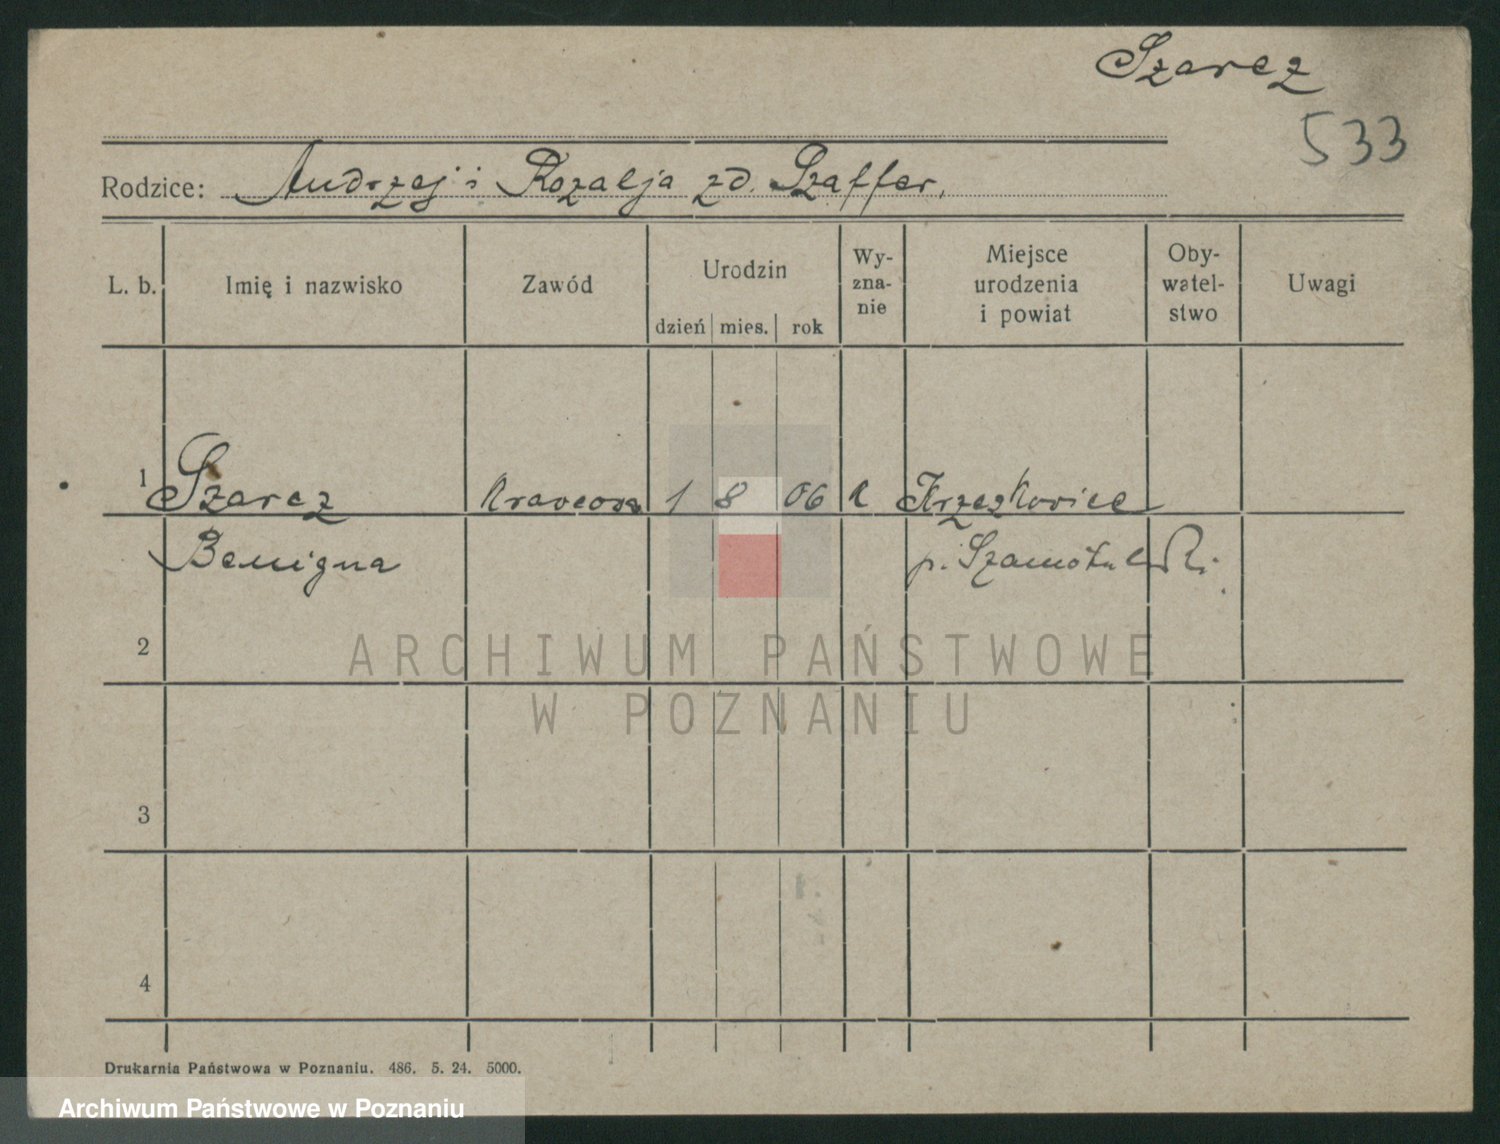 Szarcz
533
Rodzice: Andrzej i Rozalja zd. Szaffer.
L. b. Imię i nazwisko Zawód Urodzin dzień mies. rok Wy-zna-nie Miejsce urodzenia i powiat Oby-watel-stwo Uwagi
1 Szarcz Krawcowa 1 8 06 K
Benigna p. Szamotuł
2
ARCHIWUM PAŃSTWOWE
W POZNANIU
3
4
Drukarnia Państwowa w Poznaniu. 486. 5. 24. 5000.
Archiwum Państwowe w Poznaniu